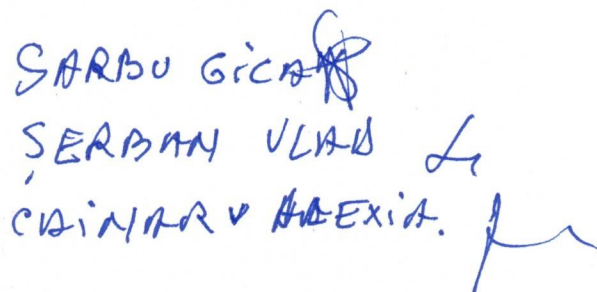 SARBU GICA
ȘERBAN VLAD
CAINARU ALEXIA.